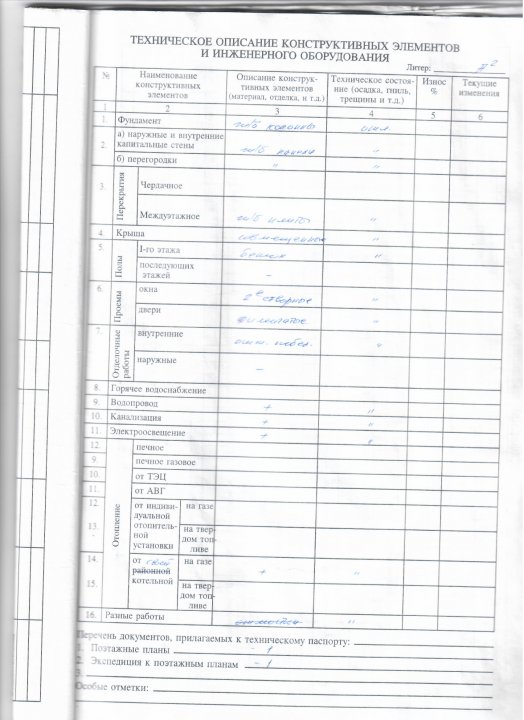 ТЕХНИЧЕСКОЕ ОПИСАНИЕ КОНСТРУКТИВНЫХ ЭЛЕМЕНТОВ
И ИНЖЕНЕРНОГО ОБОРУДОВАНИЯ
Литер:
№ Наименование конструктивных элементов Описание конструк-тивных элементов (материал, отделка, и т.д.) Техническое состоя-ние (осадка, гниль, трещины и т.д.) Износ % Текущие изменения
1 2 3 4 5 6
1. Фундамент ж/б колонны
2. а) наружные и внутренние капитальные стены ж/б панели "
б) перегородки " "
3. Перекрытия Чердачное
Междуэтажное ж/б плиты "
4. Крыша совмещенное "
5. Полы I-го этажа "
последующих этажей –
6. Проемы окна 2е створные "
двери филенчатое "
7. Отделочные работы внутренние "
наружные –
8. Горячее водоснабжение
9. Водопровод + "
10. Канализация + "
11. Электроосвещение + "
12. Отопление печное
9. печное газовое
10. от ТЭЦ
11. от АВГ
12. от индиви-дуальной отопитель-ной установки на газе
13. на твер-дом топ-ливе
14. от своей районной котельной на газе + "
15. на твер-дом топ-ливе
16. Разные работы отмостка "
Перечень документов, прилагаемых к техническому паспорту:
1. Поэтажные планы - 1
2. Экспедиция к поэтажным планам - 1
3.
Особые отметки: